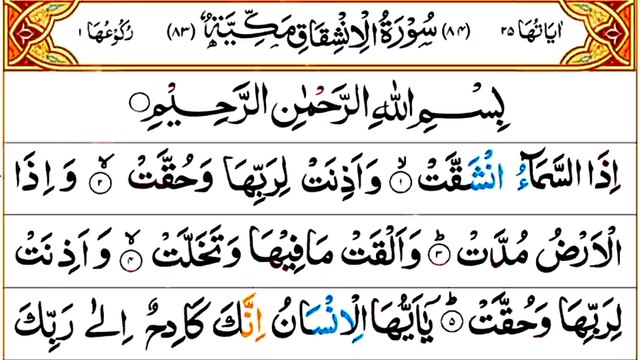 اٰيَاتُهَا ٢٥ (٨٤) سُوْرَةُ الْاِنْشِقَاقِ مَكِّيَّةٌ (٨٣) رُكُوْعُهَا ١
بِسْمِ اللّٰهِ الرَّحْمٰنِ الرَّحِيْمِ
اِذَا السَّمَآءُ انْشَقَّتْ ۙ ١ وَاَذِنَتْ لِرَبِّهَا وَحُقَّتْ ۙ ٢ وَاِذَا
الْاَرْضُ مُدَّتْ ؕ ٣ وَاَلْقَتْ مَا فِيْهَا وَتَخَلَّتْ ۙ ٤ وَاَذِنَتْ
لِرَبِّهَا وَحُقَّتْ ؕ ٥ يٰۤاَيُّهَا الْاِنْسَانُ اِنَّكَ كَادِحٌ اِلٰى رَبِّكَ